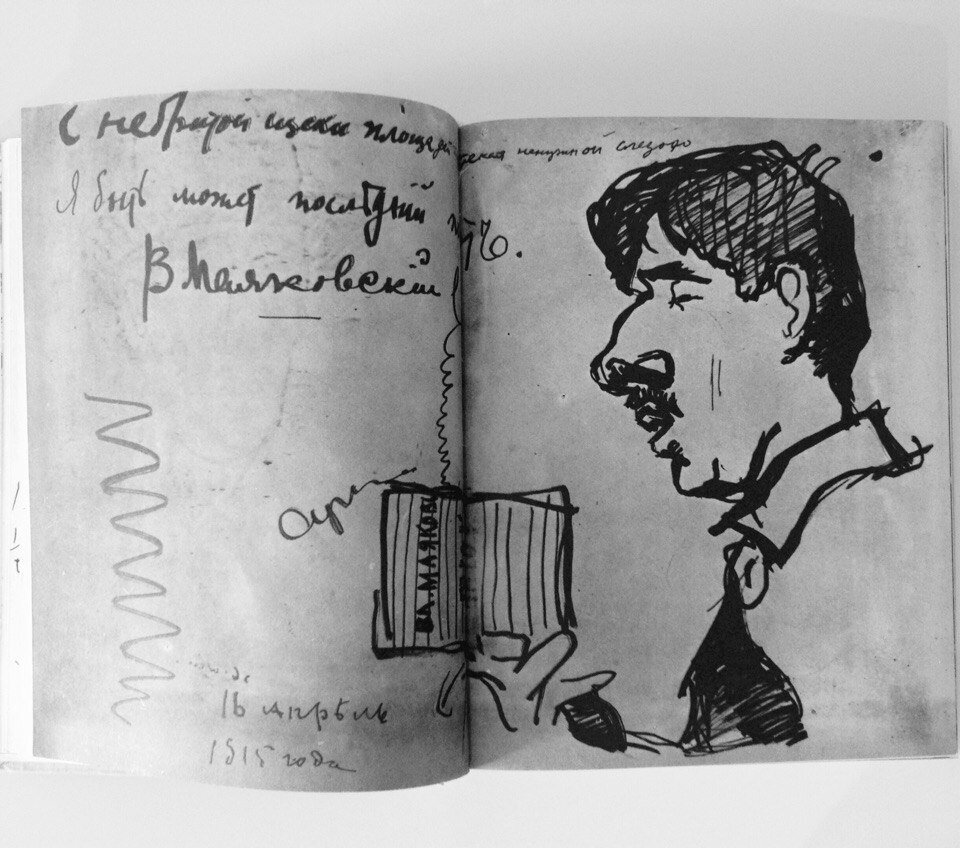 С небритой щеки площадей стекая ненужной слезою
Я быть может последний поэтъ.
В Маяковскій
ВЛ. МАЯКОВС
16 апрѣль
1915 года